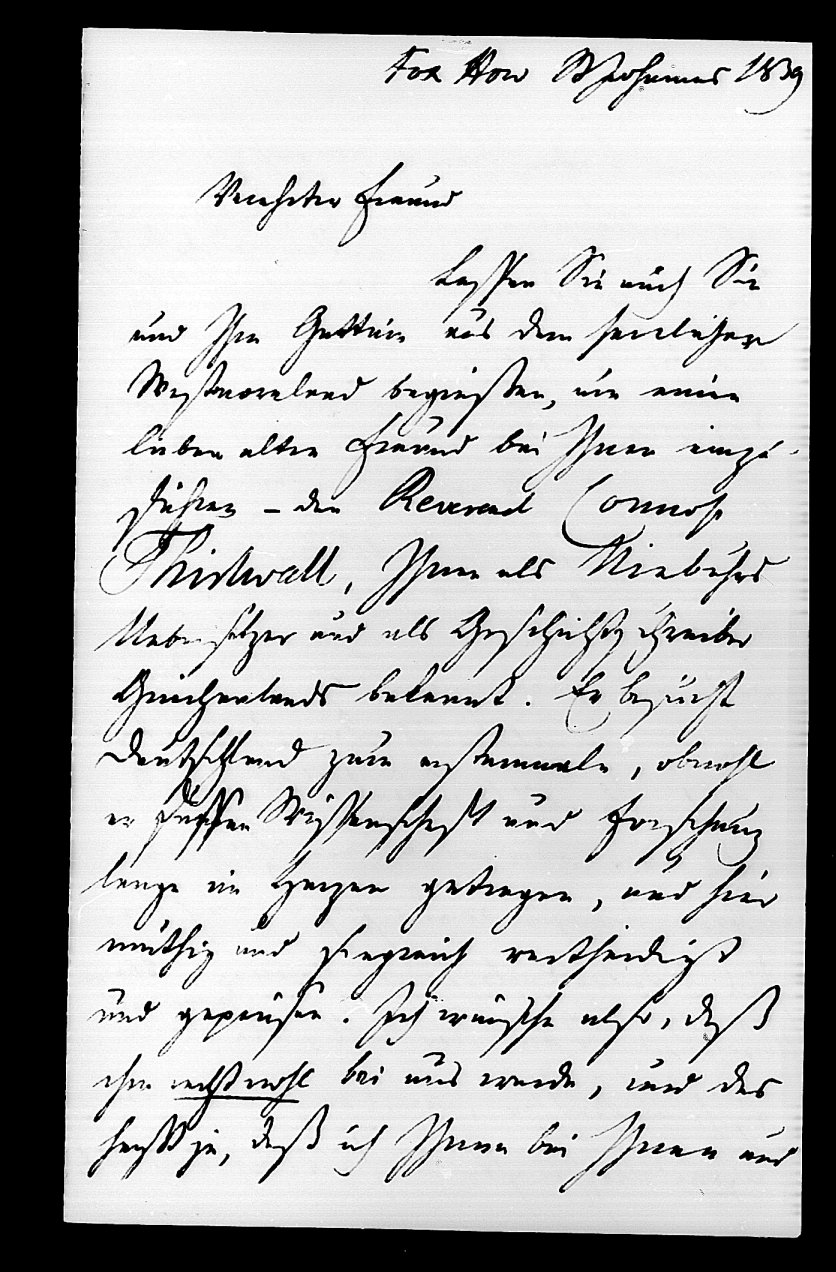 Fox How St Johannes 1839
Verehrter Freund
Lassen Sie mich Sie
und Ihre Gattin aus dem herrlichen
Westmoreland begrüssen, um einen
lieben alten Freund bei Ihnen einzu-
führen – den Reverend Connop
Thirlwall, Ihnen als Niebuhrs
Uebersetzer und als Geschichtschreiber
Griechenlands bekannt. Er besucht
Deutschland zum erstenmale, obwohl
er dessen Wissenschaft und Forschung
lange im Herzen getragen, und hier
muthig und siegreich vertheidigt
und gepriesen. Ich wünsche also, daß
ihm recht wohl bei uns werde, und das
heißt ja, daß ich Ihnen bei Ihnen und